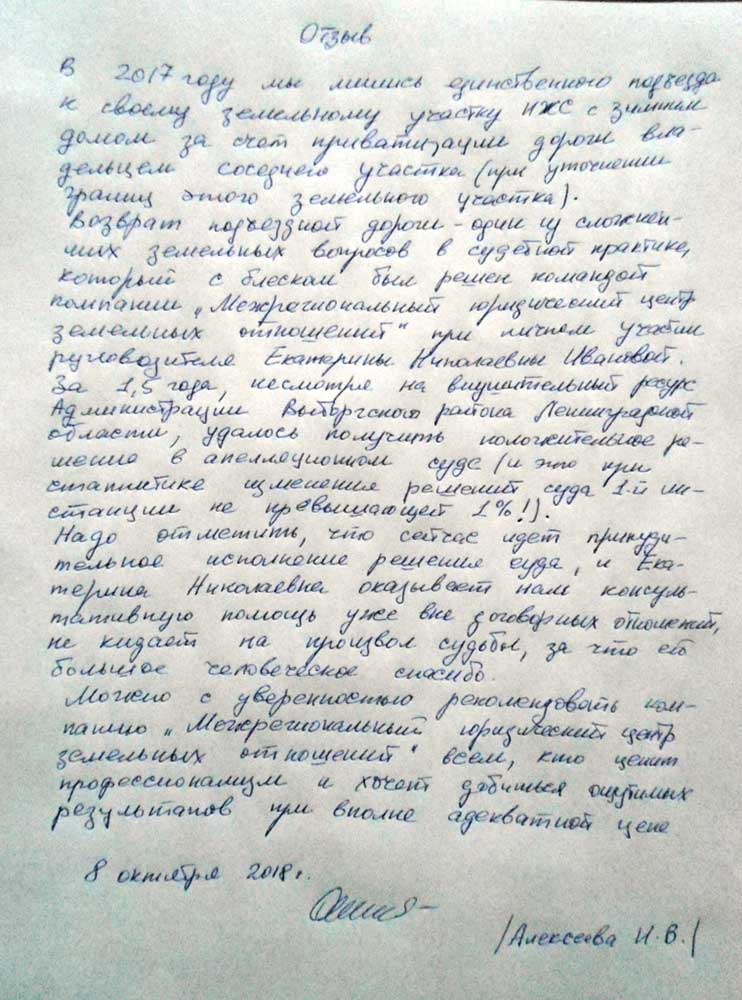 Отзыв
В 2017 году мы лишись единственного подъезда
к своему земельному участку ИЖС с зимним
домом за счет приватизации дороги вла-
дельцем соседнего участка (при уточнении
границ этого земельного участка).
Возврат подъездной дороги - один из сложней-
ших земельных вопросов в судебной практике,
который с блеском был решен командой
компании „Межрегиональный юридический центр
земельных отношений" при личном участии
руководителя Екатерины Николаевны Ивановой.
За 1,5 года, несмотря на внушительный ресурс
Администрации Выборгского района Ленинградской
области, удалось получить положительное ре-
шение в апелляционном суде (и это при
статистике изменения решений суда 1-й ин-
станции не превышающей 1%!).
Надо отметить, что сейчас идет принуди-
тельное исполнение решения суда, и Ека-
терина Николаевна оказывает нам консуль-
тативную помощь уже вне договорных отношений,
не кидает на произвол судьбы, за что ей
большое человеческое спасибо.
Можно с уверенностью рекомендовать ком-
панию „Межрегиональный юридический центр
земельных отношений" всем, кто ценит
профессионализм и хочет добиться ощутимых
результатов при вполне адекватной цене
8 октября 2018 г.
/Алексеева Н.В./